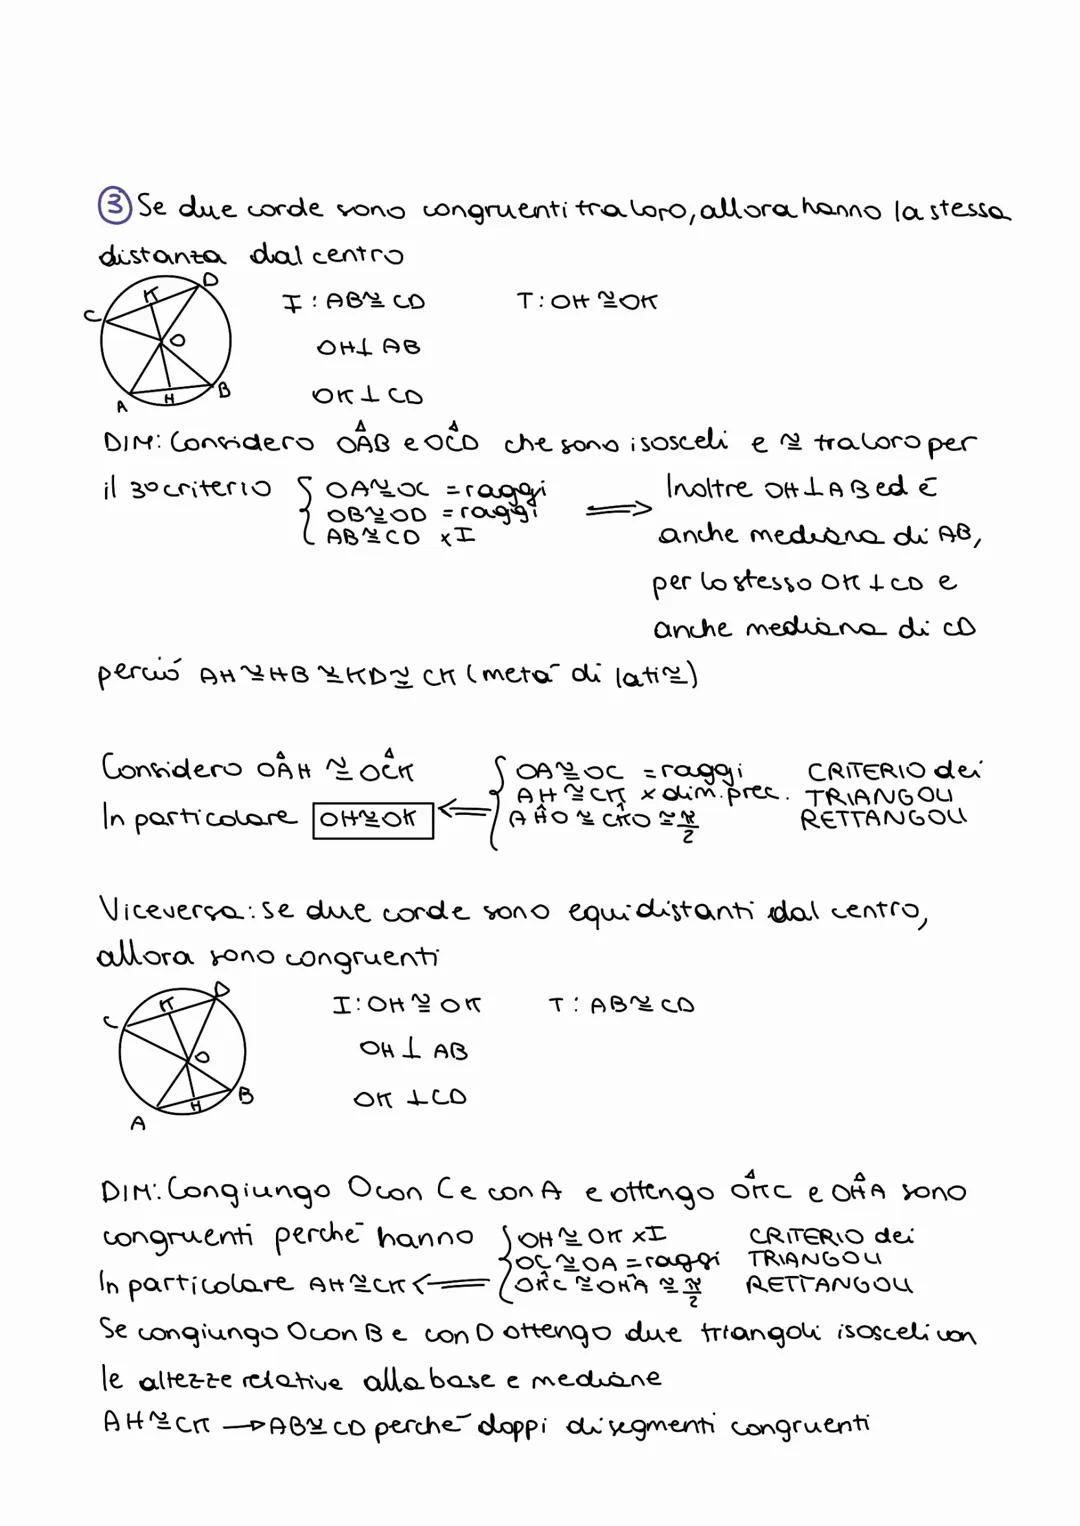 ③ Se due corde sono congruenti tra loro, allora hanno la stessa
distanza dal centro
D
K
C
O
B
H
A
I: AB≅CD T: OH≅OK
OH⊥AB
OK⊥CD
DIM: Considero OÂB e OĈD che sono isosceli e ≅ tra loro per
il 3° criterio { OA≅OC = raggi
OB≅OD = raggi
AB≅CD x I
⟹ Inoltre OH⊥AB ed é
anche mediana di AB,
per lo stesso OK⊥CD e
anche mediana di CD
perció AH≅HB≅KD≅CK (metá di lati≅)
Considero OÂH ≅ OĈK { OA≅OC = raggi CRITERIO dei
AH≅CK x dim. prec. TRIANGOLI
In particolare OH≅OK ⟸ AĤO≅CK̂O≅π/2 RETTANGOLI
Viceversa: se due corde sono equidistanti dal centro,
allora sono congruenti
D
K
C
O
B
H
A
I: OH≅OK T: AB≅CD
OH⊥AB
OK⊥CD
DIM: Congiungo O con C e con A e ottengo OK̂C e OĤA sono
congruenti perché hanno { OH≅OK x I CRITERIO dei
OC≅OA = raggi TRIANGOLI
In particolare AH≅CK ⟸ OK̂C≅OĤA≅π/2 RETTANGOLI
Se congiungo O con B e con D ottengo due triangoli isosceli con
le altezze relative alla base e mediane
AH≅CK → AB≅CD perché doppi di segmenti congruenti